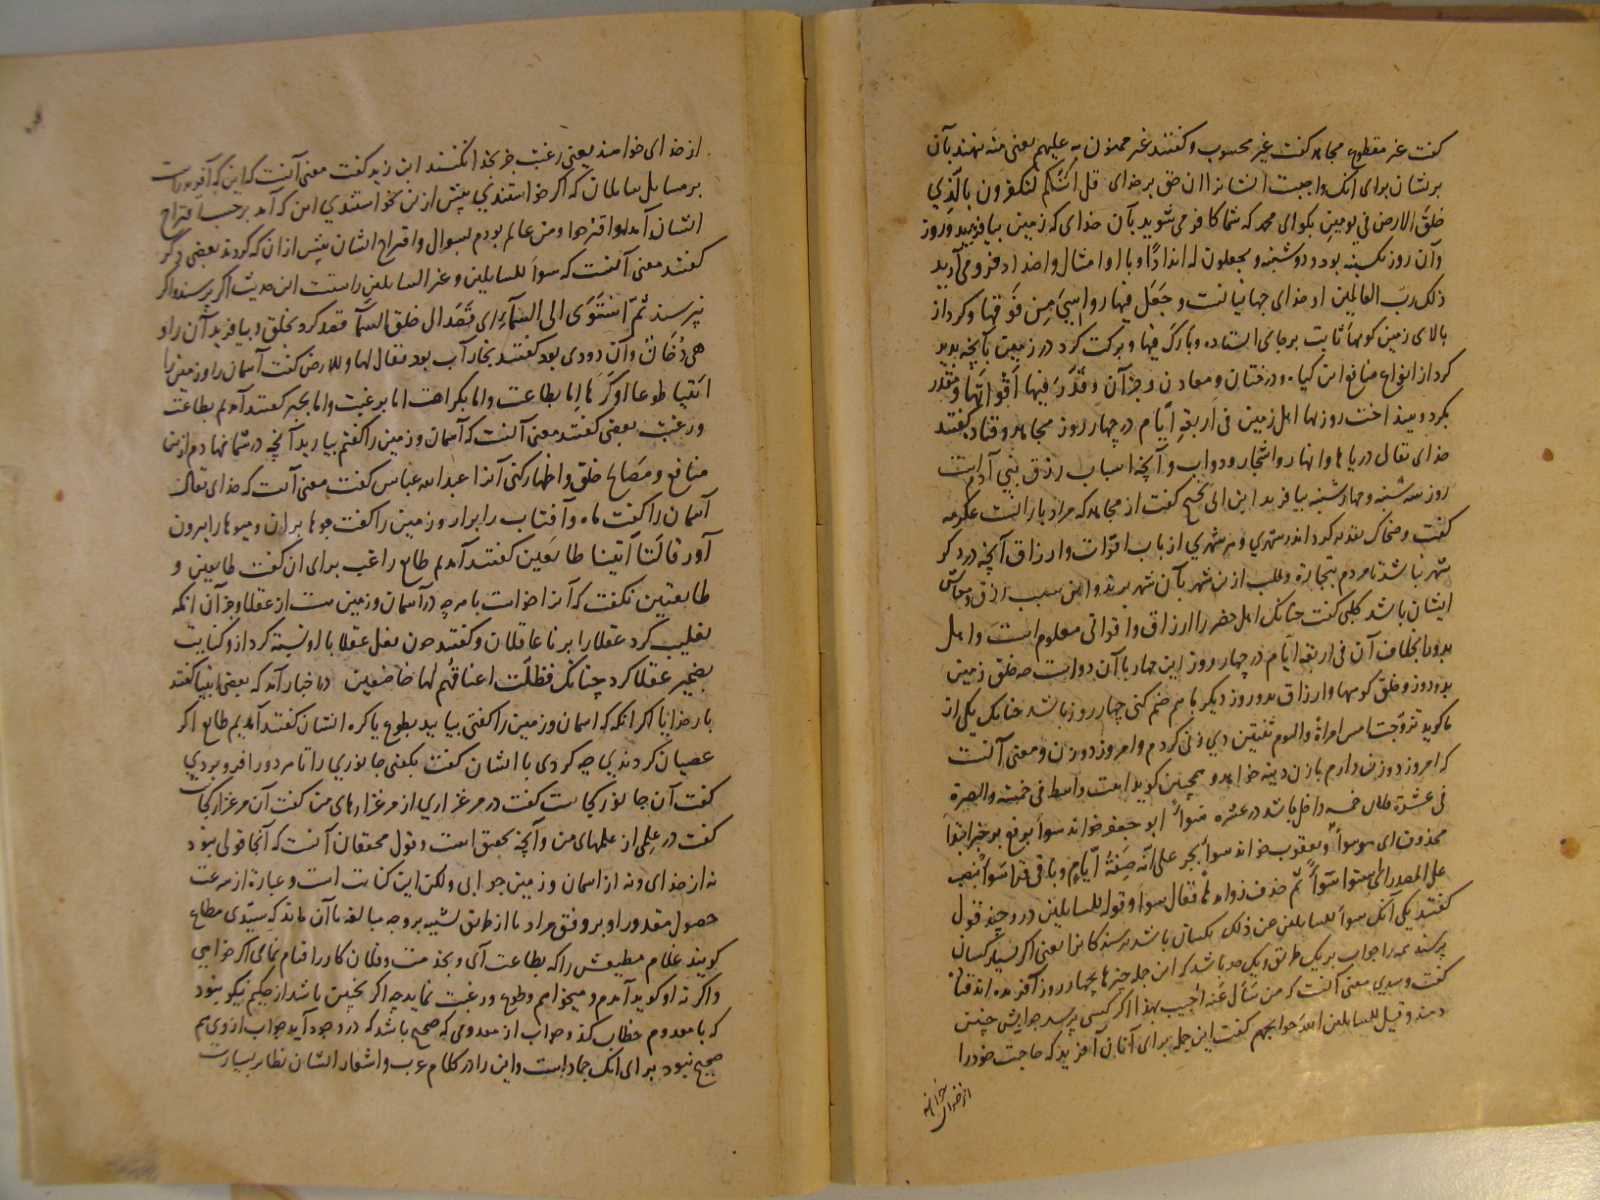 گفت غیر مقطوع مجاهد گفت غیر محسوب و گفتند غیر ممنون به علیهم یعنی منة نهند بآن
بریشان برای آنک واجبست ایشانرا آن حق بر خدای قل ائنکم لتکفرون بالذی
خلق الارض فی یومین بکو ای محمد که شما کافر می شوید بآن خدای که زمین بیافرید در دو روز
وآن روز یکشنبه بود و دوشنبه و یجعلون له اندادًا و با او امثال واضداد فرو می آرید
ذلک رب العالمین او خدای جهانیانست و جعل فیها رواسی من فوقها و کرد از
بالای زمین کوهها ثابت برجای ایستاده وبارک فیها و برکت کرد در زمین بآنچه پدید
کرد از انواع منافع این کیاه و درختان و معادن و جز آن و قدّر فیها اقواتها و مقدر
بکرد و بینداخت روزیها اهل زمین فی اربعة ایّام در چهار روز مجاهد و قتاده گفتند
خدای تعالی دریاها و انهار و اشجار و دواب و آنچه اسباب رزق بنی آدم است
روز سه شنبه و چهارشنبه بیافرید ابن ابی نجیح گفت از مجاهد که مراد بارانست عکرمه
گفت و ضحاک مقدر کرد اندر شهری و هر شهری از باب اقوات و ارزاق آنچه در دکر
شهر نباشد تا مردم بتجارة و طلب ازین شهر بآن شهر برند و این سبب رزق و معاش
ایشان باشد کلبی گفت چنانک اهل حضر را ارزاق و اقواتی معلوم است و اهل
بدو را بخلاف آن فی اربعة ایّام در چهار روز این چهار با آن دو است که خلق زمین
بدو روز و خلق کوهها و ارزاق بدو روز دیکر باهم ضم کنی چهار روز باشد چنانک یکی از
ما کوید تزوّجت امس امراة و الیوم ثنتین دی زنی کردم و امروز دو زن و معنی آنست
که امروز دو زن دارم با زن دینه خواهد و همچنین کوید اتیت واسط فی خمسة و البصرة
فی عشرة خمسه داخل باشد در عشره سواءً ابو جعفر خواند سواء برفع بر خبر ابتداء
محذوف ای هو سواءٌ و یعقوب خواند سواء بجر علی انّه صفة ایّامٍ و باقی قرا سواءً بنصب
علی المصدر ای استوا سواءً ثم حذف زوایدها فقال سواء و قوله للسایلین درو چند قول
گفتند یکی آنک سواء للسایلین عن ذلک یکسان باشد پرسندکانرا یعنی اکر بسیار کسان
پرسند همه را جواب بر یک طریق و یک حد باشد که این جمله چیزها بچهار روز آفریده اند قتاده
گفت و سدی معنی آنست که من سأل عنه اجیب بهذا اکر کسی پرسد جوابش چنین
دهند و قیل للسایلین الله حوایجهم گفت این جمله برای آنان آفرید که حاجت خود را
از خدای خواهند
از خدای خواهند یعنی رغبت جز بخدا نکنند ابن زید گفت معنی آنست که این که آفرید راست
بر مسایل سایلان که اکر خواستندی پیش ازین نخواستندی این که آمد بر حسب اقتراح
ایشان آمد لو اقترحوا و من عالم بودم بسوال و اقتراح ایشان پیش از ان که کردند بعضی دکر
گفتند معنی آنست که سواء للسایلین و غیر السایلین راست این حدیث اکر پرسند و اکر
نپرسند ثمّ استوی الی السمآء ای قصد الی خلق السمآ قصد کرد بخلق و بیافرید آن را و
هی دخان و آن دودی بود گفتند بخار آب بود فقال لها و للارض گفت آسمان را و زمین را
ائتیا طوعا او کرها اما بطاعت و اما بکراهت اما برغبت و اما بجبر گفتند آمدیم بطاعت
و رغبت بعضی گفتند معنی آنست که آسمان و زمین را گفتم بیارید آنچه در شما نهادم ازین
منافع و مصالح خلق و اظهار کنی آنرا عبدالله عباس گفت معنی آنست که خدای تعالی
آسمان را گفت ماه و آفتاب را برآر و زمین را گفت جوها بران و میوها را بیرون
آور قالتا اتینا طایعین گفتند آمدیم طایع راغب برای آن گفت طایعین و
طایعتین نکفت که آنرا خواست با هرچه در آسمان و زمین هست از عقلا و جز آن آنکه
تغلیب کرد عقلا را بر نا عاقلان و گفتند چون بفعل عقلا با او نسبت کرد از و کنایت
بضمیر عقلا کرد چنانک فظلّت اعناقهم لها خاضعین در اخبار آمد که بعضی انبیا گفتند
بار خدایا اکر آنکه که آسمان و زمین را گفتی بیایید بطوع یا کره ایشان گفتند آمدیم طایع اکر
عصیان کردندی چه کردی با ایشان گفت بکفتمی جانوری را تا هر دو را فرو بردی
گفت آن جانور کجاست گفت در مرغزاری از مرغزارهای من گفت آن مرغزار کجاست
گفت در علمی از علمهای من و آنچه تحقیق است و قول محققان آنست که آنجا قولی نبود
نه از خدای و نه از آسمان و زمین جوابی و لکن این کنایت است و عبارة از سرعت
حصول مقدور او بر وفق مراد تا از طریق تشبیه بر وجه مبالغه با آن ماند که سیّدی مطاع
کویند غلام مطیعش را که بطاعت آی و بخدمت و فلان کار را قیام نمای اکر خواهی
و اکر نه او کوید آمدم و میخواهم و طوع و رغبت نماید چه اکر نه چنین باشد از حکیم نیکو نبود
که با معدوم خطاب کند و جواب از معدومی که صحیح باشد که در وجود آید جواب از وی هم
صحیح نبود برای آنک جمادست و این را در کلام عرب و اشعار ایشان نظایر بسیارست